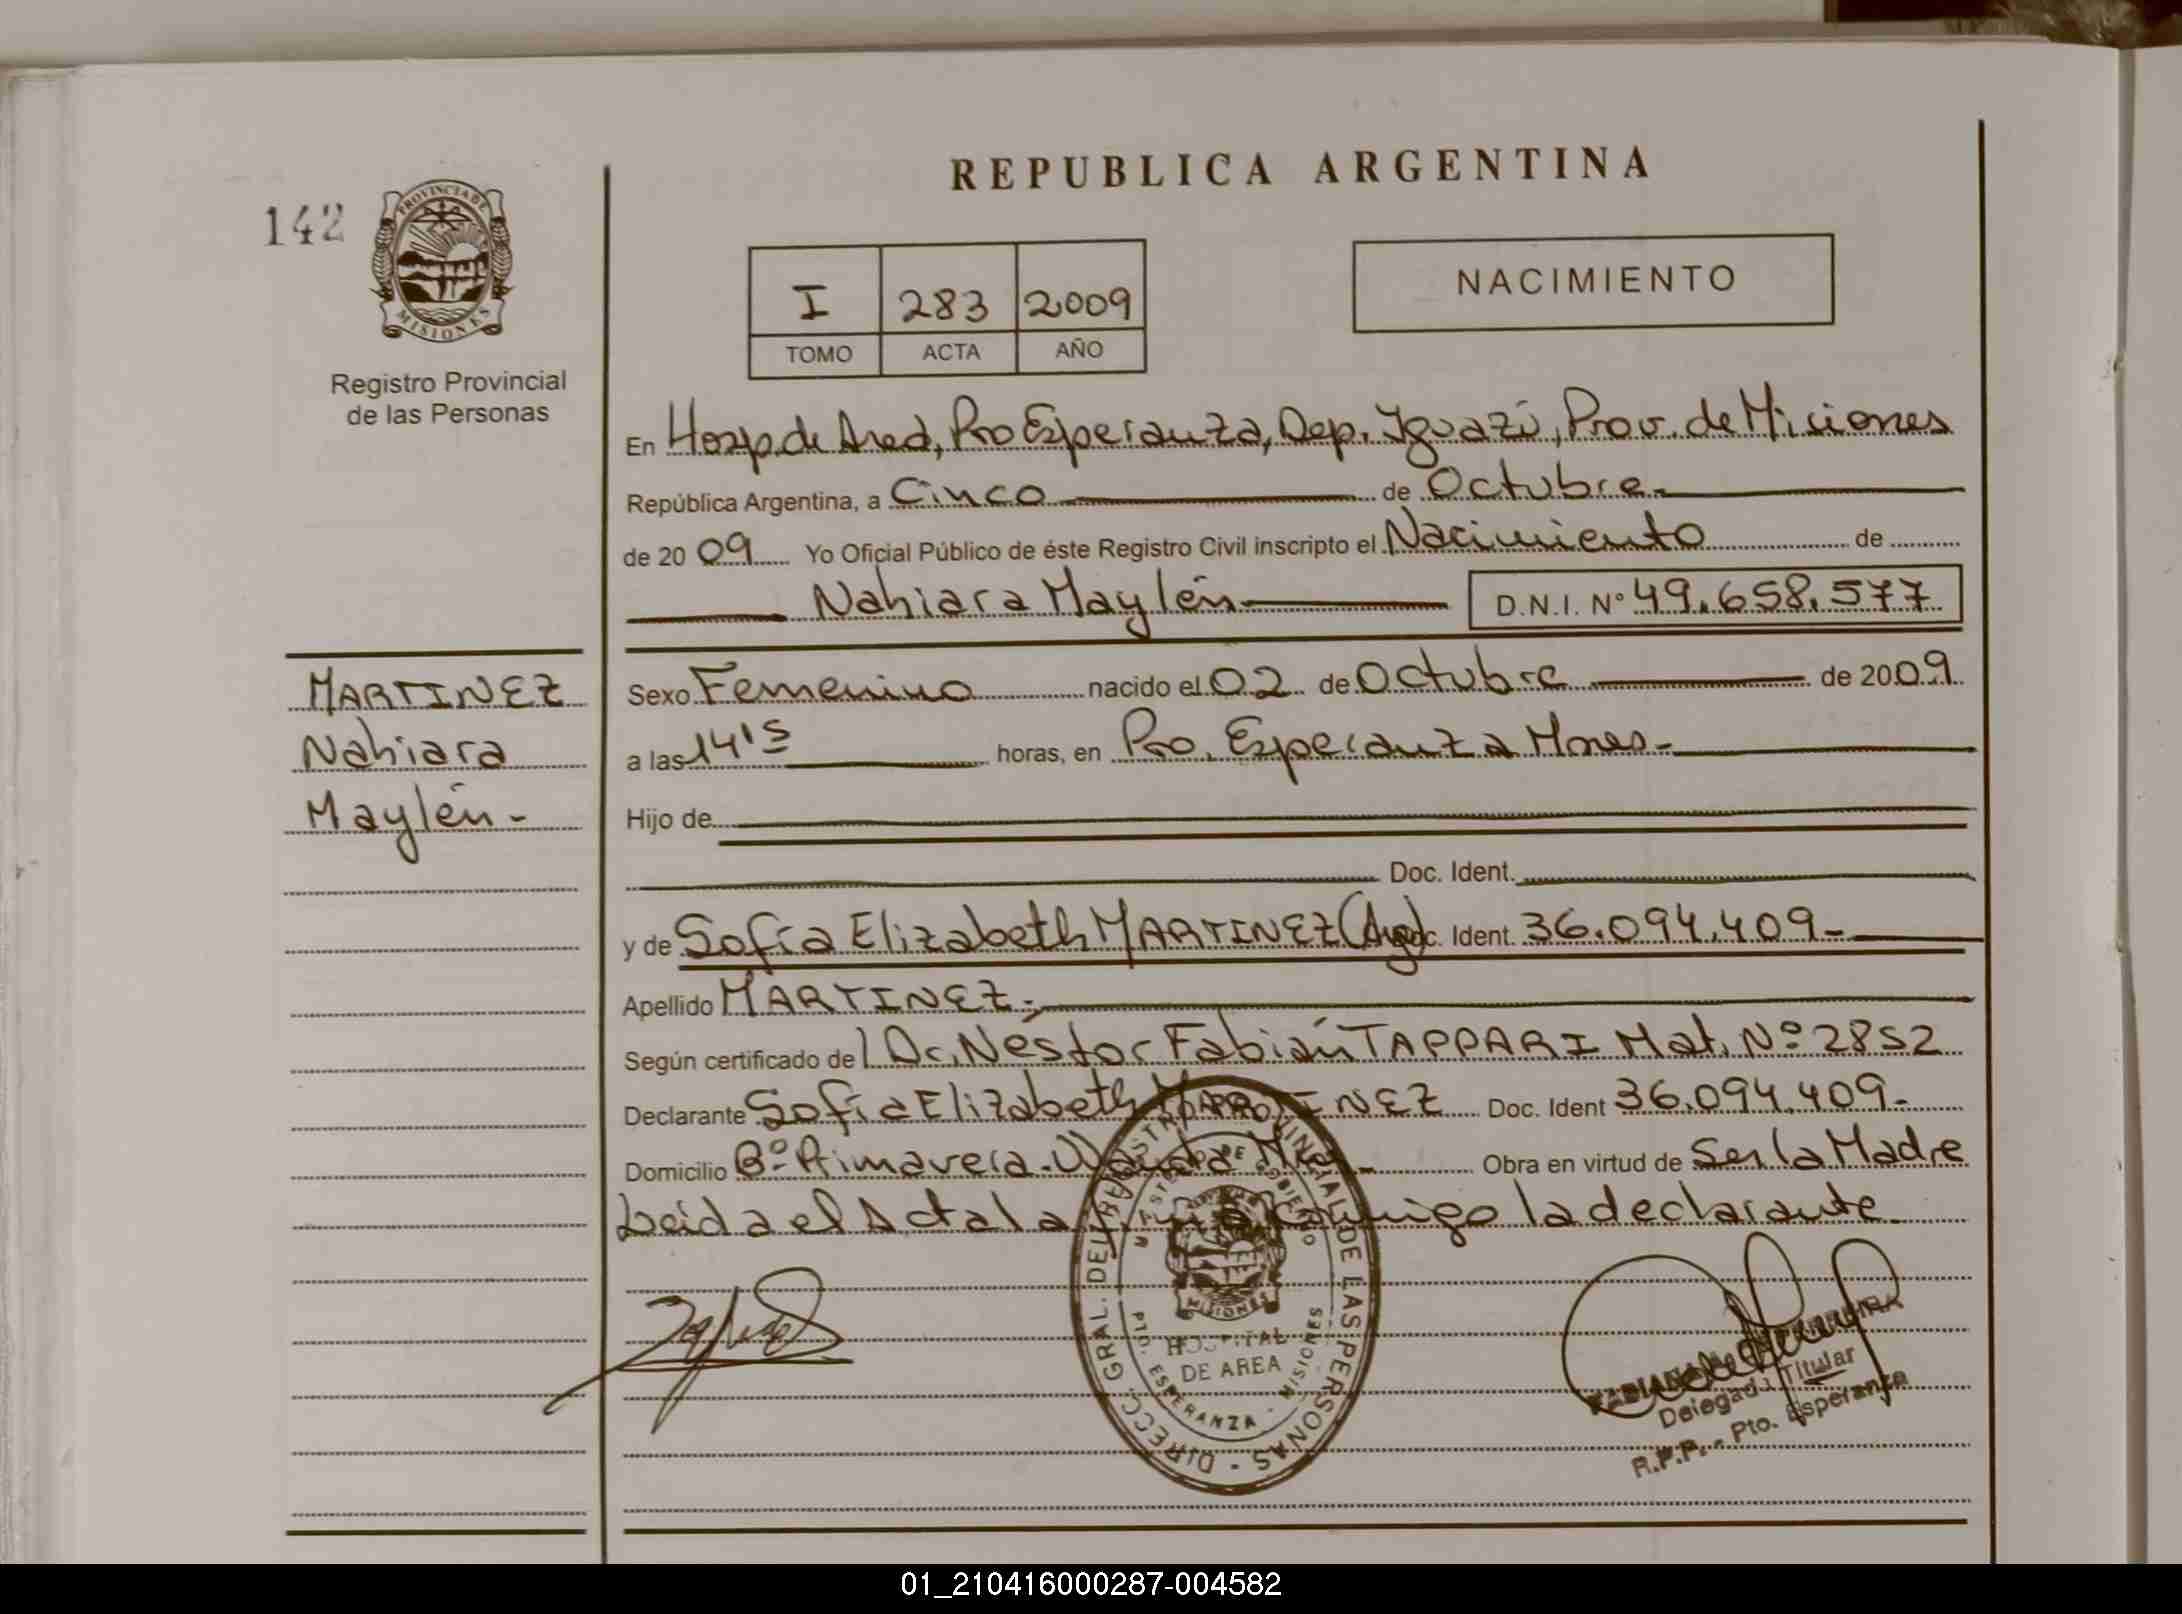 REPUBLICA ARGENTINA
142
PROVINCIA DE
MISIONES
Registro Provincial
de las Personas
I 283 2009
TOMO ACTA AÑO
NACIMIENTO
En Hosp. de Area, Pto Esperanza, Dep. Iguazú, Prov. de Misiones
República Argentina, a Cinco de Octubre.
de 2009 Yo Oficial Público de éste Registro Civil inscripto el Nacimiento de
Nahiara Maylén D.N.I. Nº 49.658.577
MARTINEZ
Nahiara
Maylén-
Sexo Femenino nacido el 02 de Octubre de 2009
a las 14'15 horas, en Pto. Esperanza Mnes-
Hijo de
Doc. Ident.
y de Sofía Elizabeth MARTINEZ (Arg) Doc. Ident. 36.094.409-
Apellido MARTINEZ.
Según certificado de Dr. Néstor Fabián TAPPARI Mat. Nº 2852
Declarante Sofía Elizabeth MARTINEZ Doc. Ident 36.094.409-
Domicilio Bº Primavera - Wanda Mnes- Obra en virtud de Ser la Madre
Leida el Acta la conmigo la declarante
DIRECC. GRAL. DEL REGISTRO PROVINCIAL DE LAS PERSONAS -
MISIONES
HOSPITAL
DE AREA
PTO. ESPERANZA - MISIONES
Delegada Titular
R.P.P. - Pto. Esperanza
01_210416000287-004582